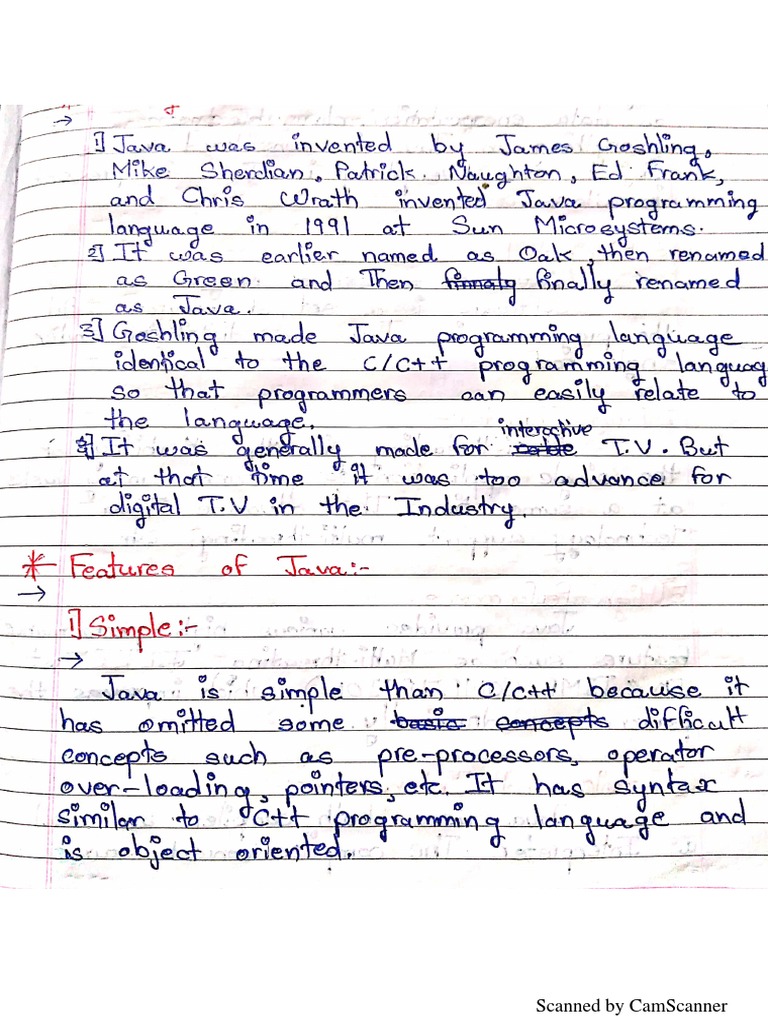 →
1] Java was invented by James Goshling,
Mike Sherdian, Patrick Naughton, Ed Frank,
and Chris Wrath invented Java programming
language in 1991 at Sun Microsystems.
2] It was earlier named as Oak, then renamed
as Green and Then finnaly finally renamed
as Java.
3] Goshling made Java programming language
identical to the C/C++ programming languag
so that programmers can easily relate to
the language.
interactive
4] It was generally made for T.V. But
at that time it was too advance for
digital T.V in the Industry.
* Features of Java:-
→
1] Simple:-
→
Java is simple than C/C++ because it
has omitted some basic concepts difficult
concepts such as pre-processors, operator
over-loading, pointers, etc. It has syntax
similar to C++ programming language and
is object oriented.
Scanned by CamScanner